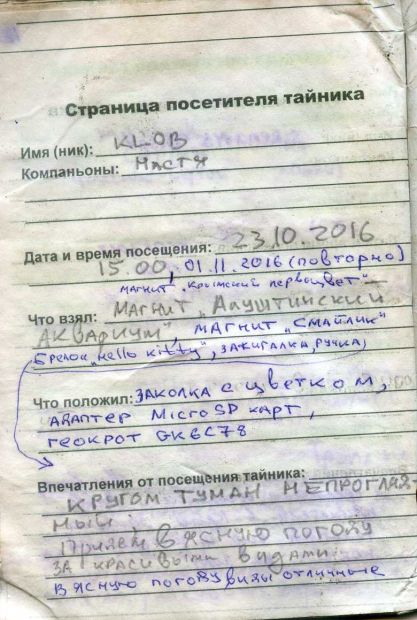 Страница посетителя тайника
Имя (ник): KLOB
Компаньоны: НАСТЯ
Дата и время посещения: 23.10.2016
15.00, 01.11.2016 (повторно)
магнит "Крымский первоцвет"
Что взял: МАГНИТ "Алуштинский
АКВАРИУМ", МАГНИТ "СМАЙЛИК"
Брелок "Hello kitty", ЗАЖИГАЛКА, РУЧКА)
Что положил: ЗАКОЛКА С ЦВЕТКОМ,
АДАПТЕР MicroSD КАРТ,
ГЕОКРОТ GK6C78
Впечатления от посещения тайника:
КРУГОМ ТУМАН НЕПРОГЛЯД-
НЫЙ.
ПРИДЕМ В ЯСНУЮ ПОГОДУ
ЗА КРАСИВЫМИ ВИДАМИ.
В ЯСНУЮ ПОГОДУ ВИДЫ ОТЛИЧНЫЕ